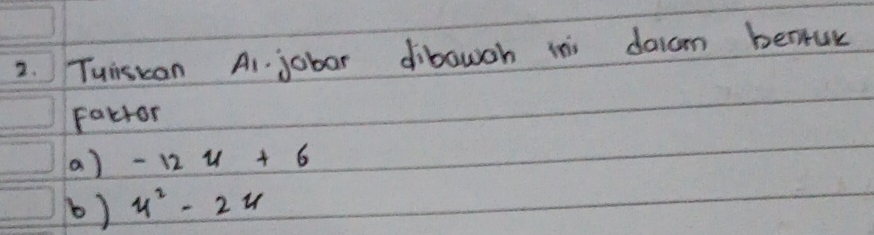 2. Tuliskan Al.jabar dibawah ini dalam bentuk
Faktor
a) - 12 x + 6
b) x² - 2x